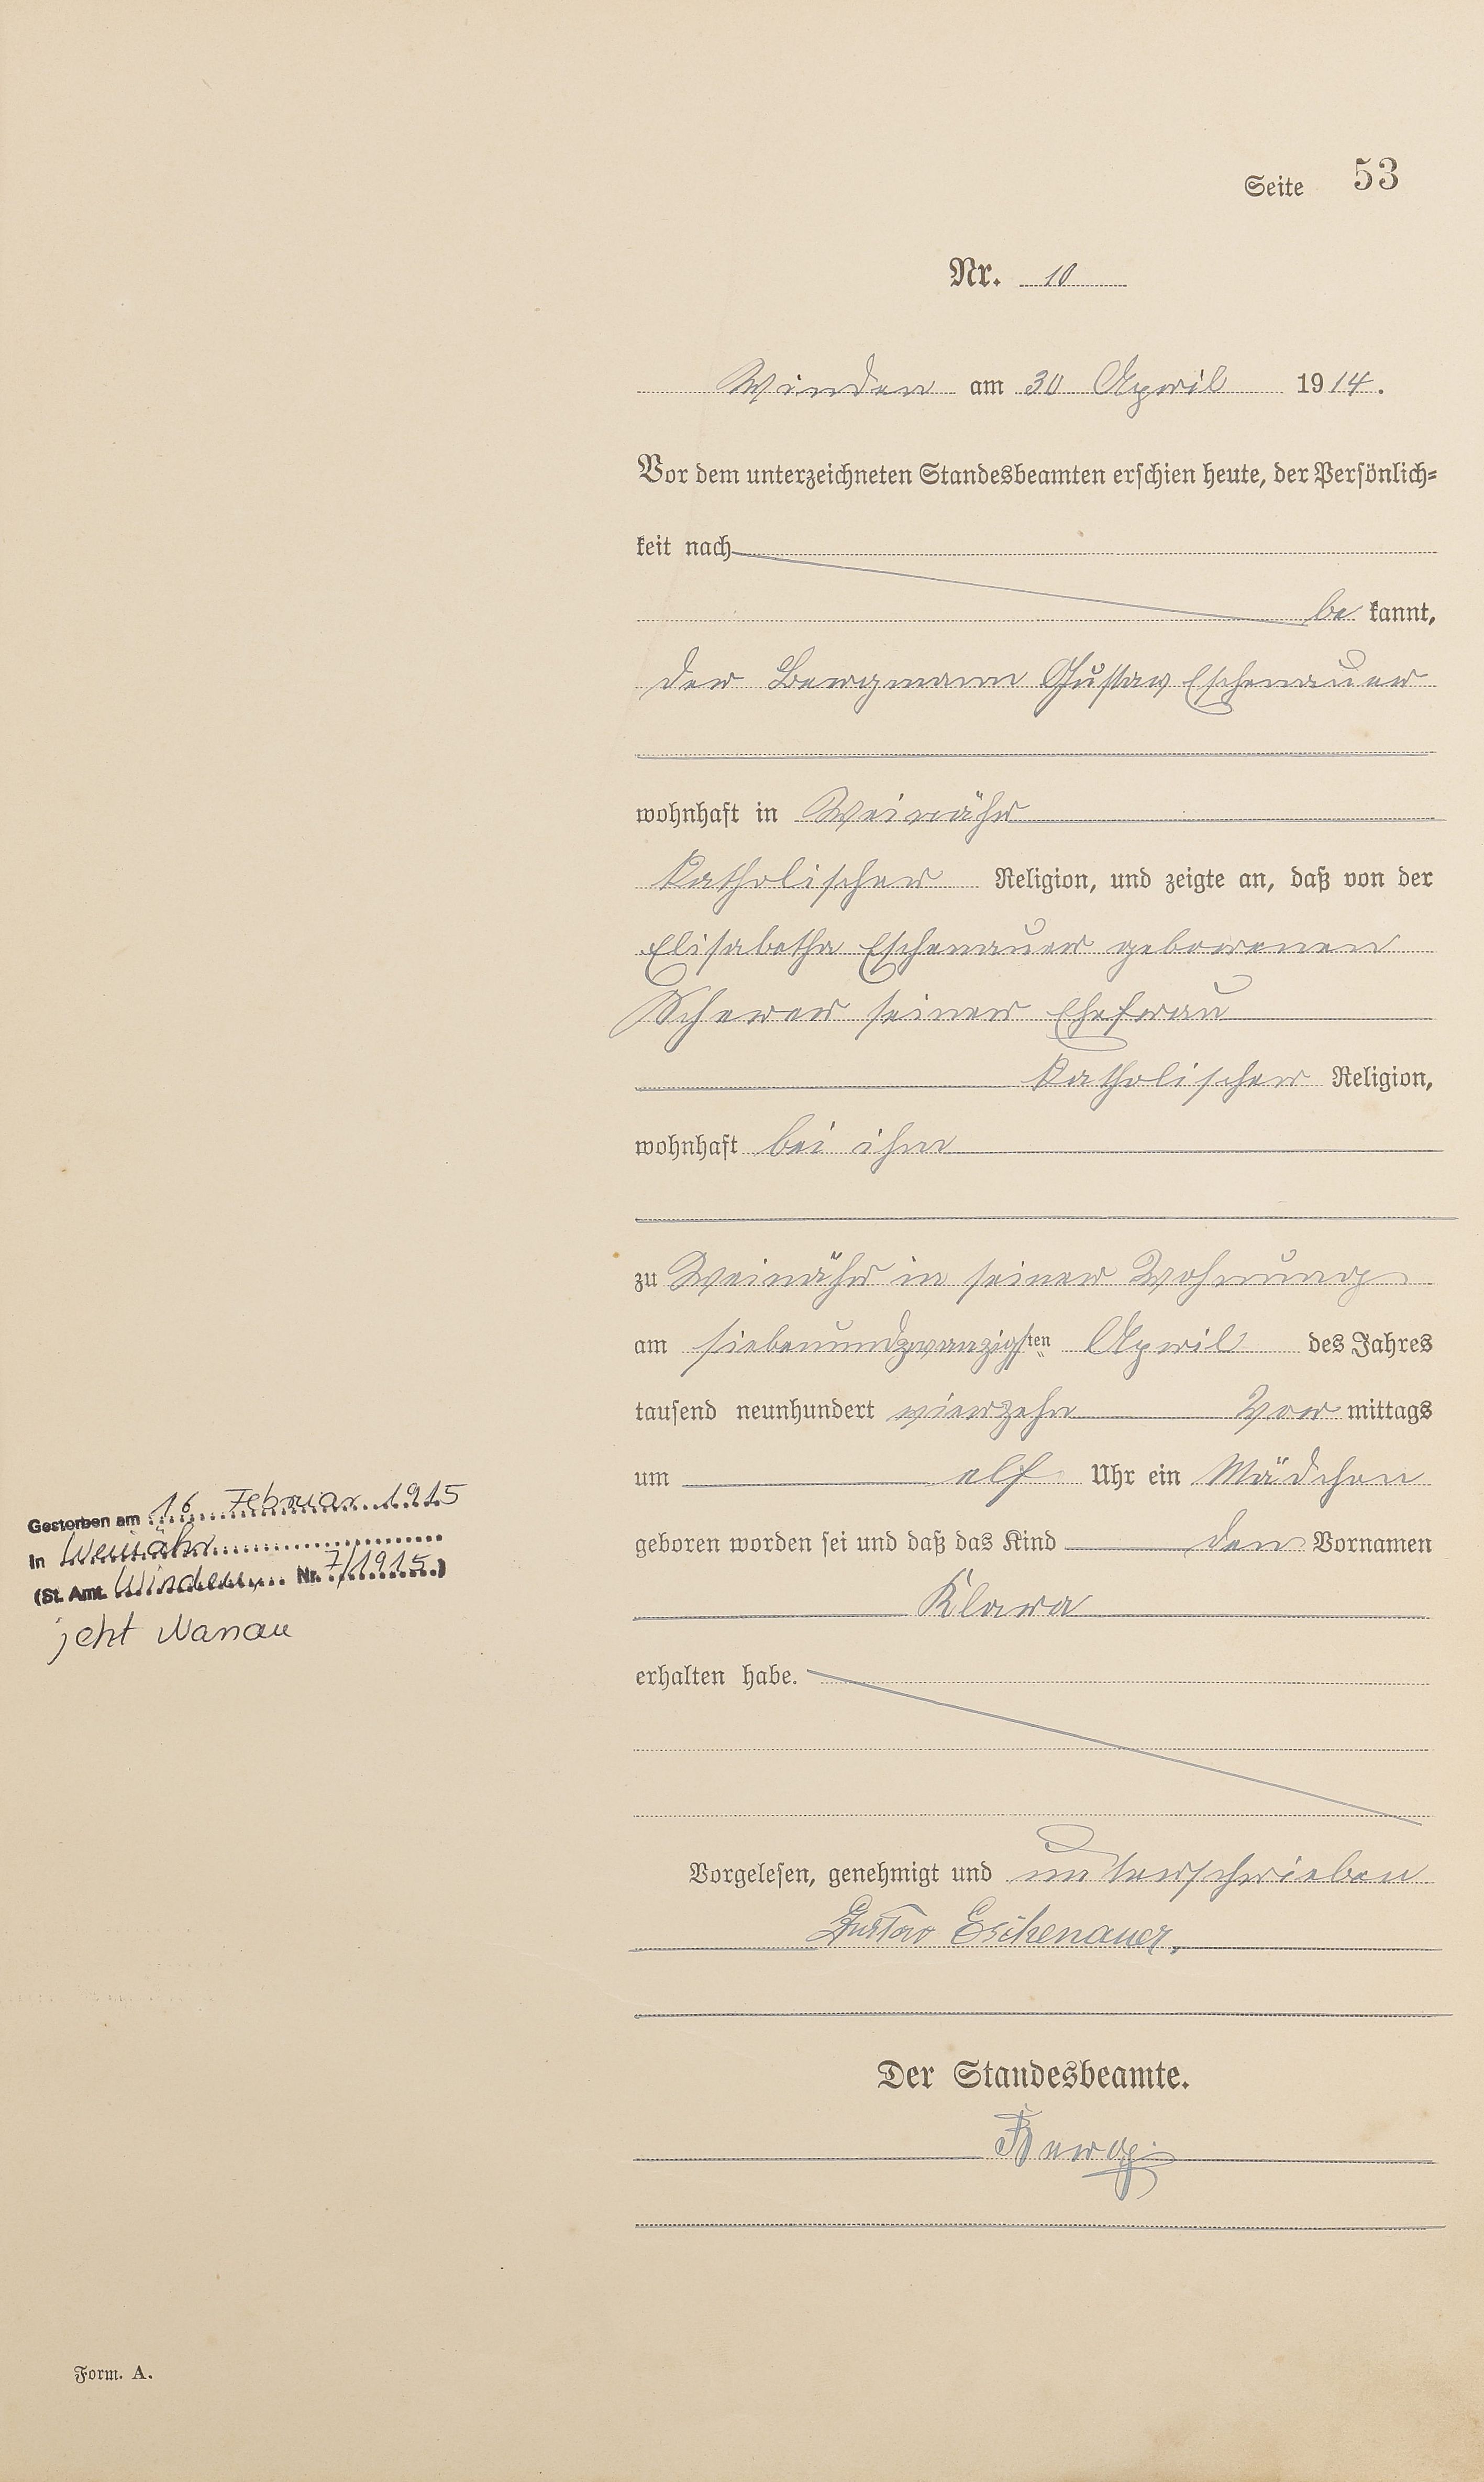 Seite 53
Nr. 10
Winden am 30 April 1914.
Vor dem unterzeichneten Standesbeamten erschien heute, der Persönlich=
keit nach
be kannt,
der Bergmann Gustav Eschenauer
wohnhaft in Weinähr
katholischer Religion, und zeigte an, daß von der
Elisabetha Eschenauer geborenen
Scherer seiner Ehefrau
katholischer Religion,
wohnhaft bei ihm
zu Weinähr in seiner Wohnung
am siebenundzwanzigsten April des Jahres
tausend neunhundert vierzehn Vor mittags
um elf Uhr ein Mädchen
geboren worden sei und daß das Kind den Vornamen
Klara
erhalten habe.
Vorgelesen, genehmigt und unterschrieben
Gustav Eschenauer,
Der Standesbeamte.
Gestorben am 16. Februar 1915
In Weinähr
(St. Amt. Winden Nr. 7/1915)
jetzt Nassau
Form. A.